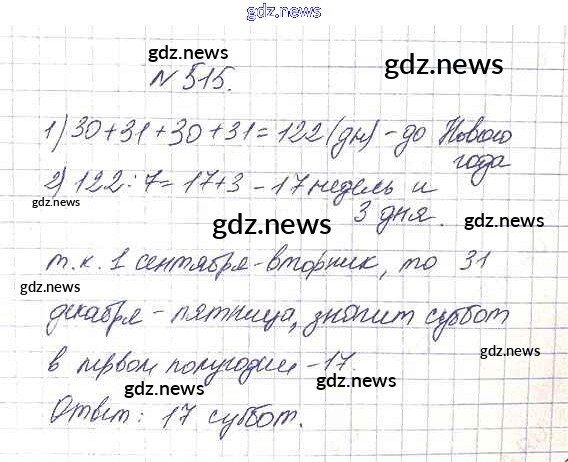 gdz.news
gdz.news
gdz.news
N 515.
1) 30+31+30+31=122 (дн) - до Нового
года
2) 122:7=17+3 - 17 недель и
gdz.news
3 дня.
gdz.news
gdz.news
т.к. 1 сентября-вторник, то 31
gdz.news
декабря - пятница, значит суббот
gdz.news
в первом полугодии - 17.
gdz.news
gdz.news
Ответ: 17 суббот.